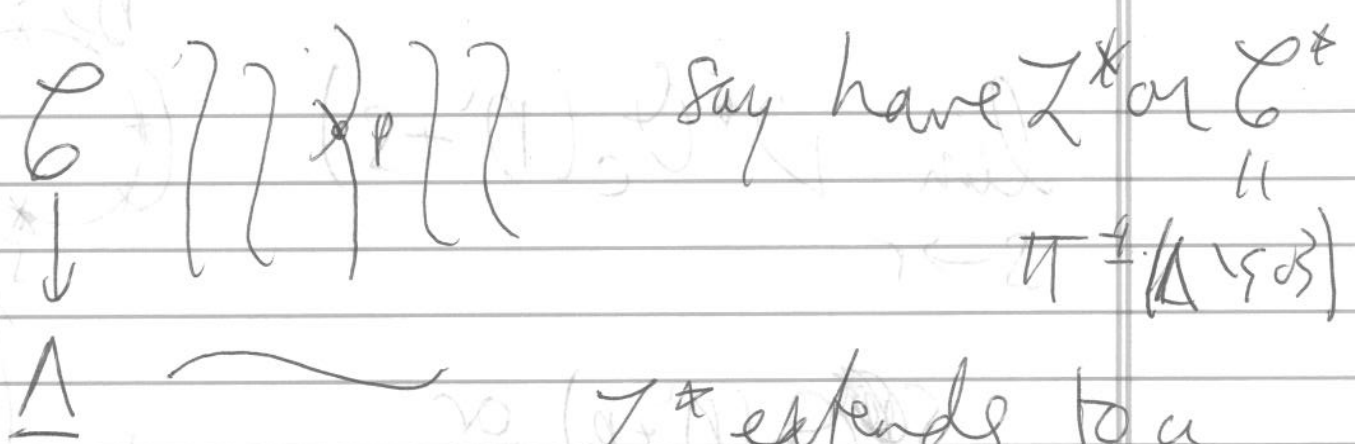 𝒞 p Say have L* on 𝒞*
↓ ||
π⁻¹(Δ∖{0})
Δ L* extends to a